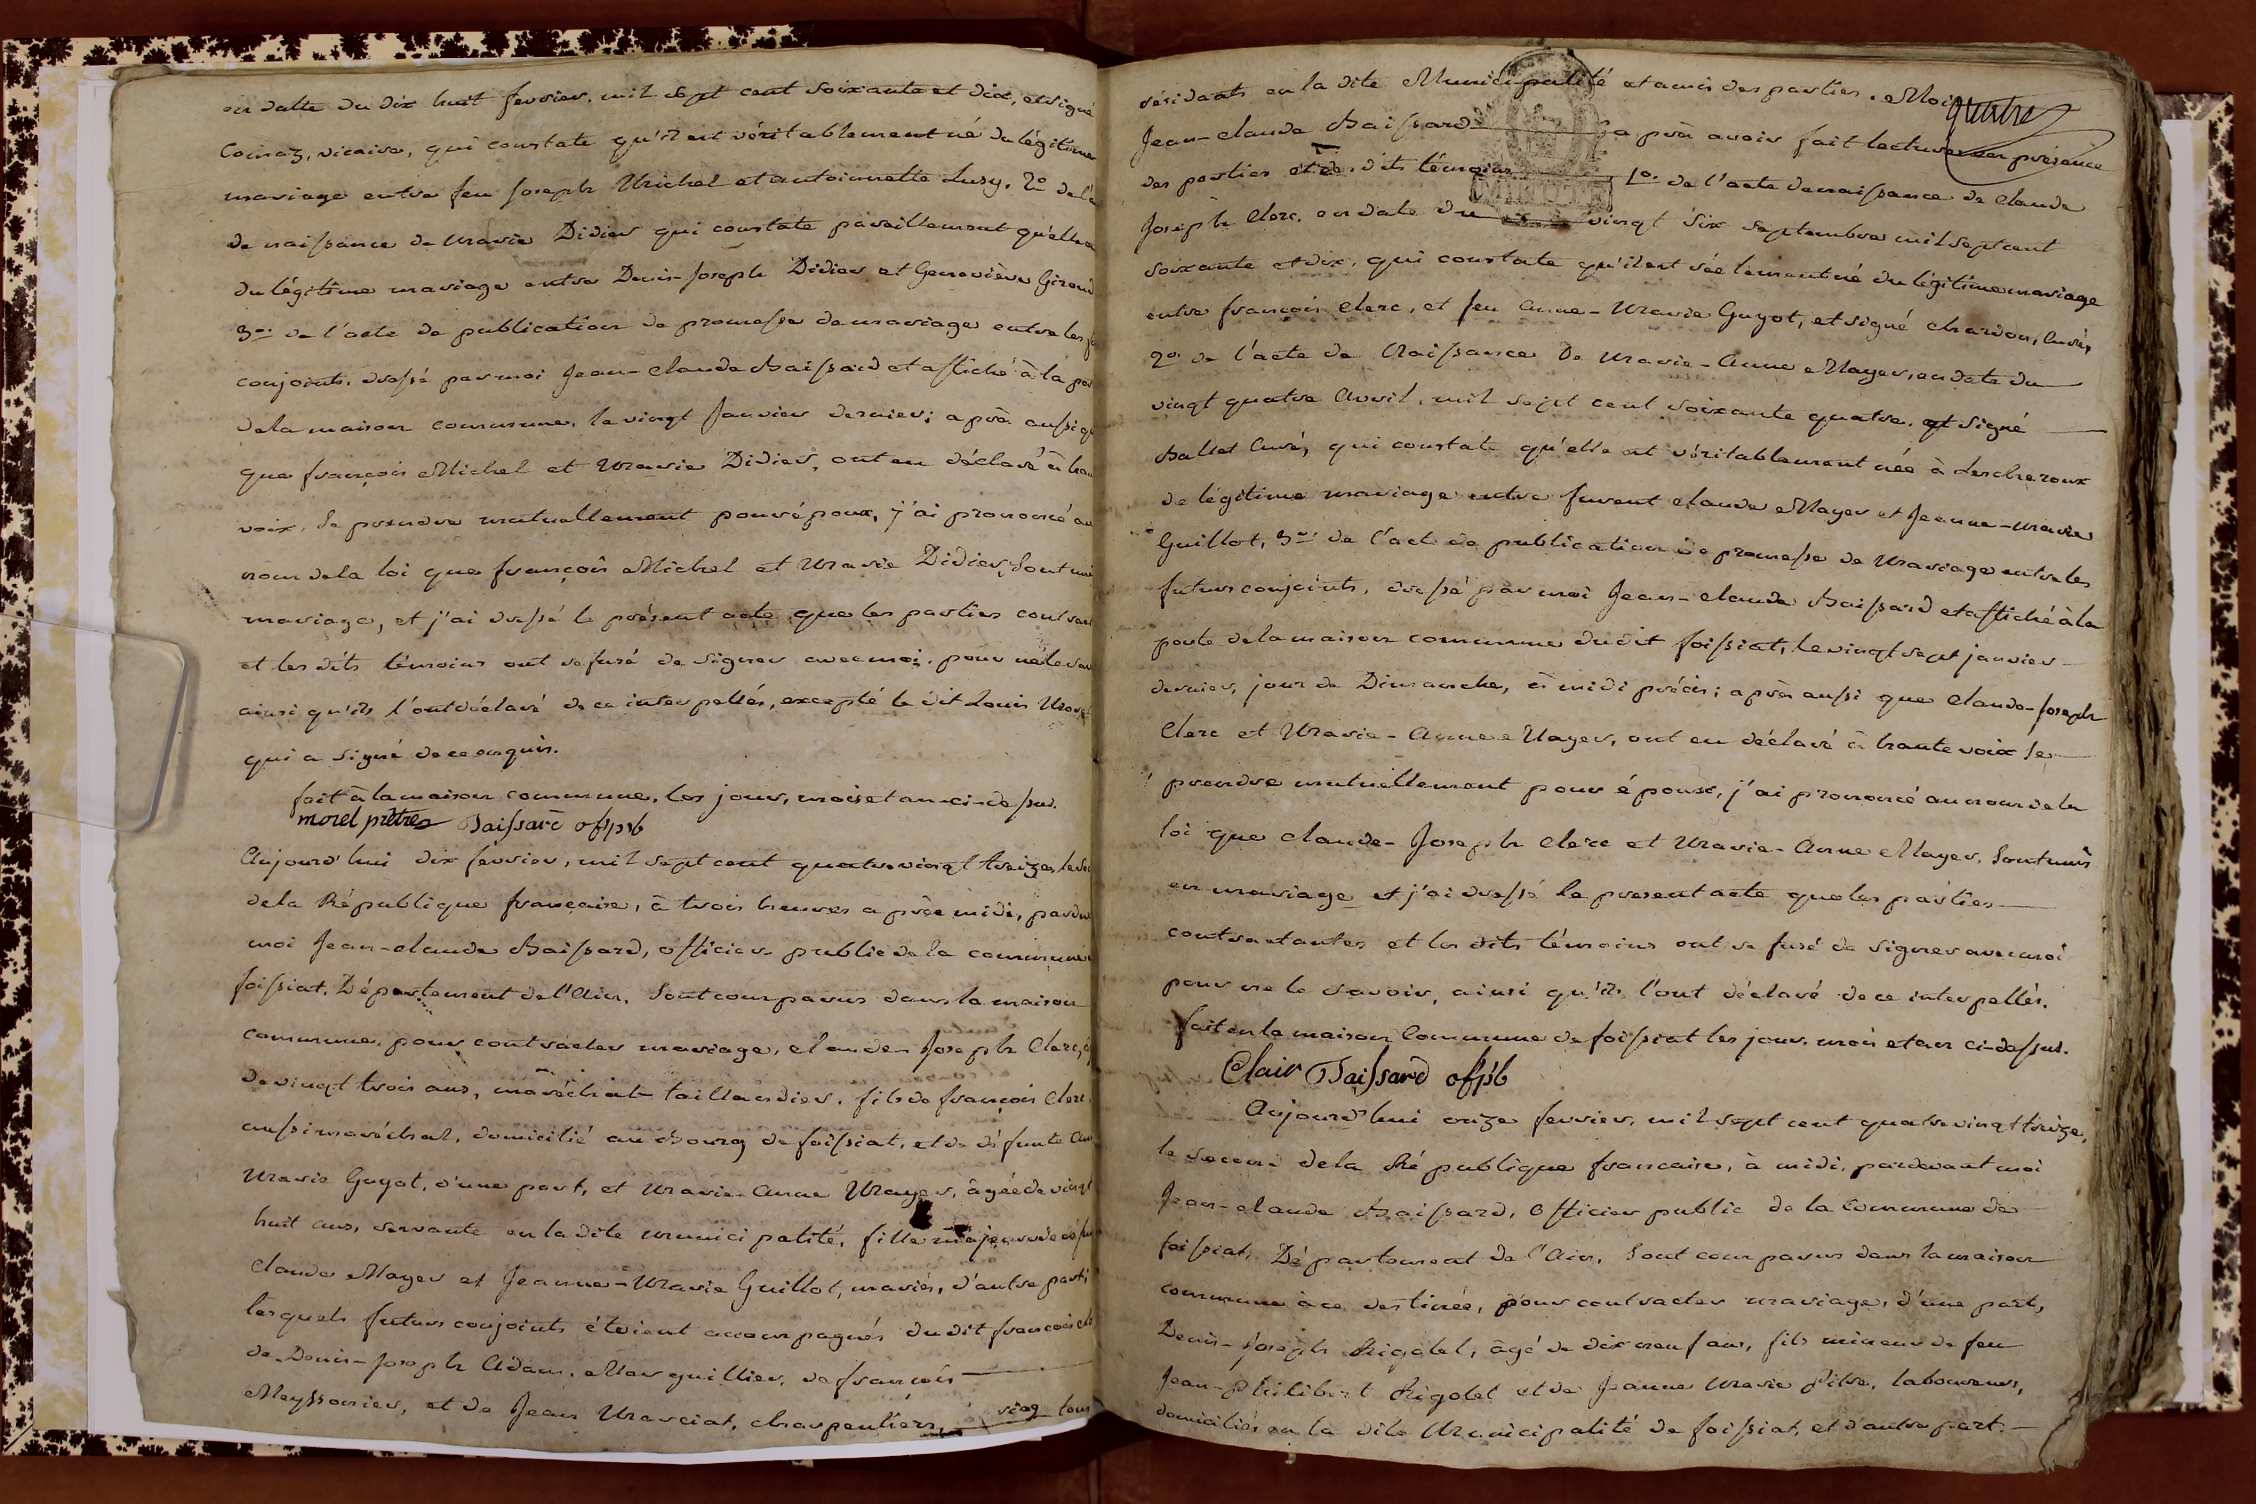 en datte du dix huit fevrier, mil sept cent soixante et dix, et signé
vicaire, qui constate qu'il est véritablement né du légitime
mariage entre feu Joseph Michel et antoinette Lusy. 2o de l'a
de naissance de Marie Didier qui constate pareillement qu'elle
du légitime mariage entre Denis-Joseph Didier et Geneviève Giroud
3o de l'acte de publication de promesse de mariage entre les
conjoints, dressé par moi Jean-claude Baissard et affiché à la por
de la maison commune, le vingt Janvier dernier; après aussi
que françois Michel et Marie Didier, ont eu déclaré à hau
voix, se prendre mutuellement pour époux, j'ai prononcé au
nom de la loi que françois Michel et Marie Didier, sont uni
mariage, et j'ai dressé le présent acte que les parties contrac
et les dits témoins ont refusé de signer avec moi, pour ne le sav
ainsi qu'ils l'ont déclaré de ce interpellés, excepté le dit Louis Morel
qui a signé de ce enquis.
fait à la maison commune, les jour, mois et an ci-dessus.
morel prêtre Baissard offpb
Aujourd'hui dix fevrier, mil sept cent quatre vingt treize, le se
de la République française, à trois heures après midi, pardev
moi Jean-claude Baissard, officier public de la commune
foissiat, Département de l'Ain, sont comparus dans la maison
commune, pour contracter mariage, claude-Joseph Clerc,
de vingt trois ans, maréchal taillandier, fils de françois Clerc,
aussi maréchal, domicilié au bourg de foissiat, et de défunte An
Marie Guyot, d'une part, et Marie-Anne Mayer, âgée de vingt
huit ans, servante en la dite municipalité, fille majeure de défun
Claude Mayer et Jeanne-Marie Guillot, mariés, d'autre part;
lesquels futurs conjoints étoient accompagnés du dit françois cle
de Denis-Joseph Adam, Marguillier, de françois
Meyssonier, et de Jean Marciat, charpentiers, tous
quatre
résidants en la dite Municipalité et amis des parties. Moi
Jean-claude Baissard après avoir fait lecture en présence
des parties et de dits témoins 1o. de l'acte de naissance de Claude
Joseph Clerc, en date du vingt six septembre mil sept cent
soixante et dix, qui constate qu'il est réelement né du légitime mariage
entre françois Clerc, et feu Anne-Marie Guyot, et signé chardon, Curé,
2o de l'acte de Naissance De Marie-Anne Mayer, en date du
vingt quatre Avril, mil sept cent soixante quatre, et signé
Ballet Curé, qui constate qu'elle est véritablement née à Lescheroux
de légitime mariage entre furent claude Mayer et Jeanne-Marie
Guillot, 3o de l'acte de publication de promesse de Mariage entre les
futurs conjoints, dressé par moi Jean-claude Baissard et affiché à la
porte de la maison commune du dit foissiat, le vingt sept janvier
dernier, jour de Dimanche, à midi précis; après aussi que Claude-Joseph
Clerc et Marie-Anne Mayer, ont eu déclaré à haute voix se
prendre mutuellement pour époux, j'ai prononcé au nom de la
loi que claude-Joseph Clerc et Marie-Anne Mayer, sont unis
en mariage et j'ai dressé le present acte que les parties
contractantes et les dits témoins ont refusé de signer avec moi
pour ne le savoir, ainsi qu'ils l'ont déclaré de ce interpellés.
fait en la maison Commune de foissiat les jour, mois et an ci-dessus.
Clair Baissard offpb
Aujourd'hui onze fevrier, mil sept cent quatre vingt treize,
le second de la République francaise, à midi, pardevant moi
Jean-claude Baissard, Officier public de la Commune de
foissiat, Département de l'Ain, sont comparus dans la maison
commune à ce destinée, pour contracter mariage, d'une part,
Denis-Joseph Rigolet, âgé de dix neuf ans, fils mineur de feu
Jean-Philibert Rigolet et de Jeanne Marie Pitre, laboureurs,
domiciliés en la dite Municipalité de foissiat, et d'autre part